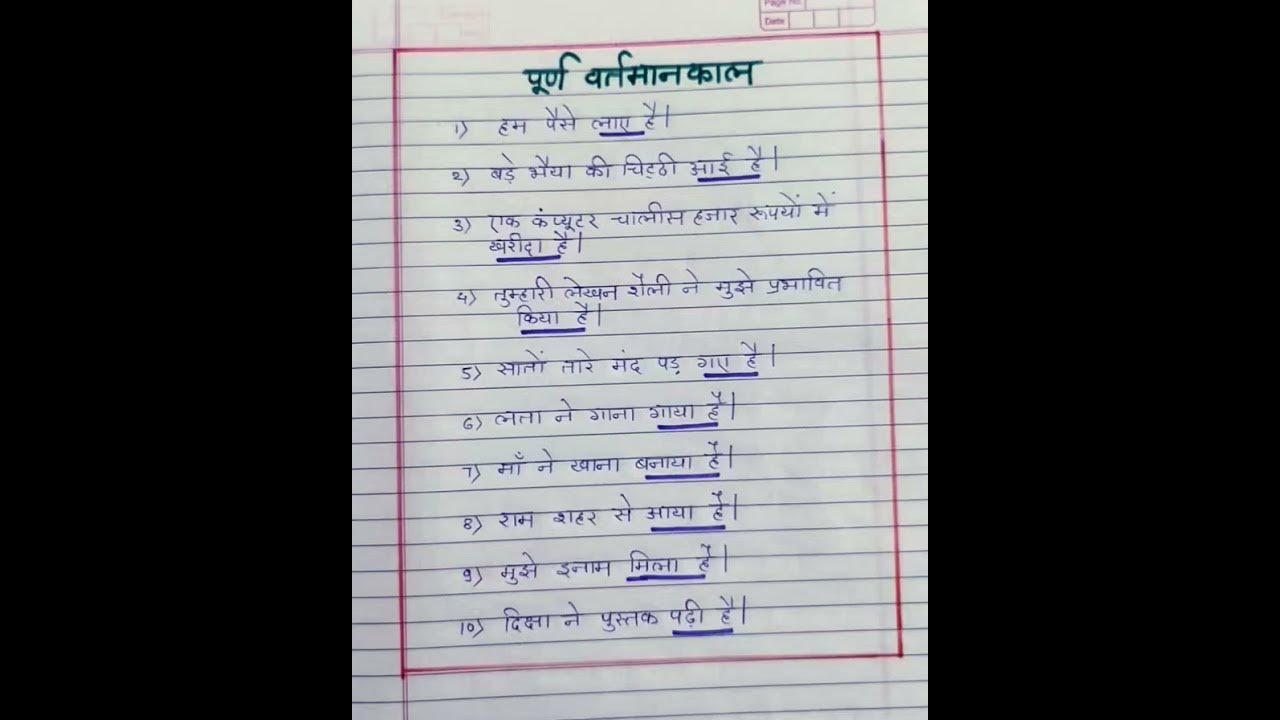 Page No.
Date
पूर्ण वर्तमानकाल
1) हम पैसे लाए है।
2) बड़े भैया की चिट्ठी आई है।
3) एक कंप्यूटर चालीस हजार रूपयों में
खरीदा है।
4) तुम्हारी लेखन शैली ने मुझे प्रभावित
किया है।
5) सातों तारे मंद पड़ गए है।
6) लता ने गाना गाया है।
7) माँ ने खाना बनाया है।
8) राम शहर से आया है।
9) मुझे इनाम मिला है।
10) दिक्षा ने पुस्तक पढ़ी है।